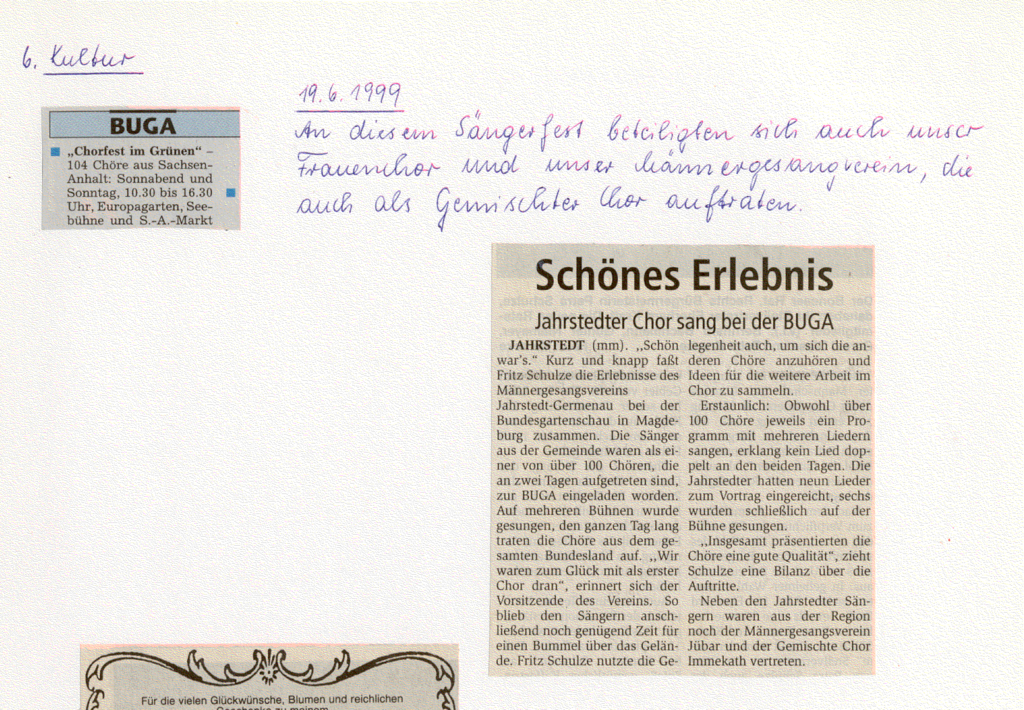 6. Kultur
BUGA
„Chorfest im Grünen“ –
104 Chöre aus Sachsen-
Anhalt: Sonnabend und
Sonntag, 10.30 bis 16.30
Uhr, Europagarten, See-
bühne und S.-A.-Markt
19.6.1999
An diesem Sängerfest beteiligten sich auch unser
Frauenchor und unser Männergesangverein, die
auch als Gemischter Chor auftraten.
Schönes Erlebnis
Jahrstedter Chor sang bei der BUGA
JAHRSTEDT (mm). „Schön
war's.“ Kurz und knapp faßt
Fritz Schulze die Erlebnisse des
Männergesangsvereins
Jahrstedt-Germenau bei der
Bundesgartenschau in Magde-
burg zusammen. Die Sänger
aus der Gemeinde waren als ei-
ner von über 100 Chören, die
an zwei Tagen aufgetreten sind,
zur BUGA eingeladen worden.
Auf mehreren Bühnen wurde
gesungen, den ganzen Tag lang
traten die Chöre aus dem ge-
samten Bundesland auf. „Wir
waren zum Glück mit als erster
Chor dran“, erinnert sich der
Vorsitzende des Vereins. So
blieb den Sängern ansch-
ließend noch genügend Zeit für
einen Bummel über das Gelän-
de. Fritz Schulze nutzte die Ge-
legenheit auch, um sich die an-
deren Chöre anzuhören und
Ideen für die weitere Arbeit im
Chor zu sammeln.
Erstaunlich: Obwohl über
100 Chöre jeweils ein Pro-
gramm mit mehreren Liedern
sangen, erklang kein Lied dop-
pelt an den beiden Tagen. Die
Jahrstedter hatten neun Lieder
zum Vortrag eingereicht, sechs
wurden schließlich auf der
Bühne gesungen.
„Insgesamt präsentierten die
Chöre eine gute Qualität“, zieht
Schulze eine Bilanz über die
Auftritte.
Neben den Jahrstedter Sän-
gern waren aus der Region
noch der Männergesangsverein
Jübar und der Gemischte Chor
Immekath vertreten.
Für die vielen Glückwünsche, Blumen und reichlichen
Geschenke zu meinem